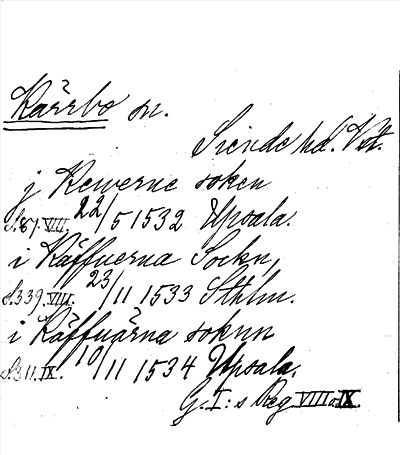 Kärrbo sn.
Siende hd. Vstm.
j Kewerne soken
S. 87. VIII. 22/5 1532 Upsala.
i Käffuerna Sockn,
S. 339. VIII. 23/11 1533 Sthlm.
i Käffuärna soknn
S. 311. IX. 10/11 1534 Upsala.
G. I:s Reg VIII o IX.